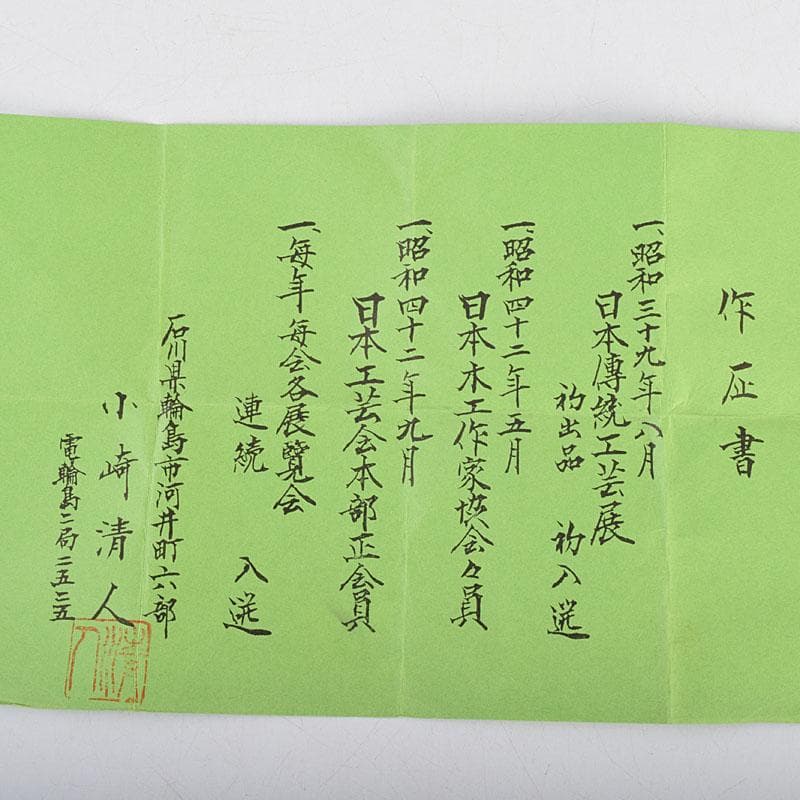 作证書
一、昭和三十九年八月
日本傳統工芸展
初出品 初入選
一、昭和四十二年五月
日本木工作家協会々員
一、昭和四十二年九月
日本工芸会本部正会員
一、毎年毎会各展覧会
連続 入選
石川県輪島市河井町六部
小崎清人
電輪島二局二五二五